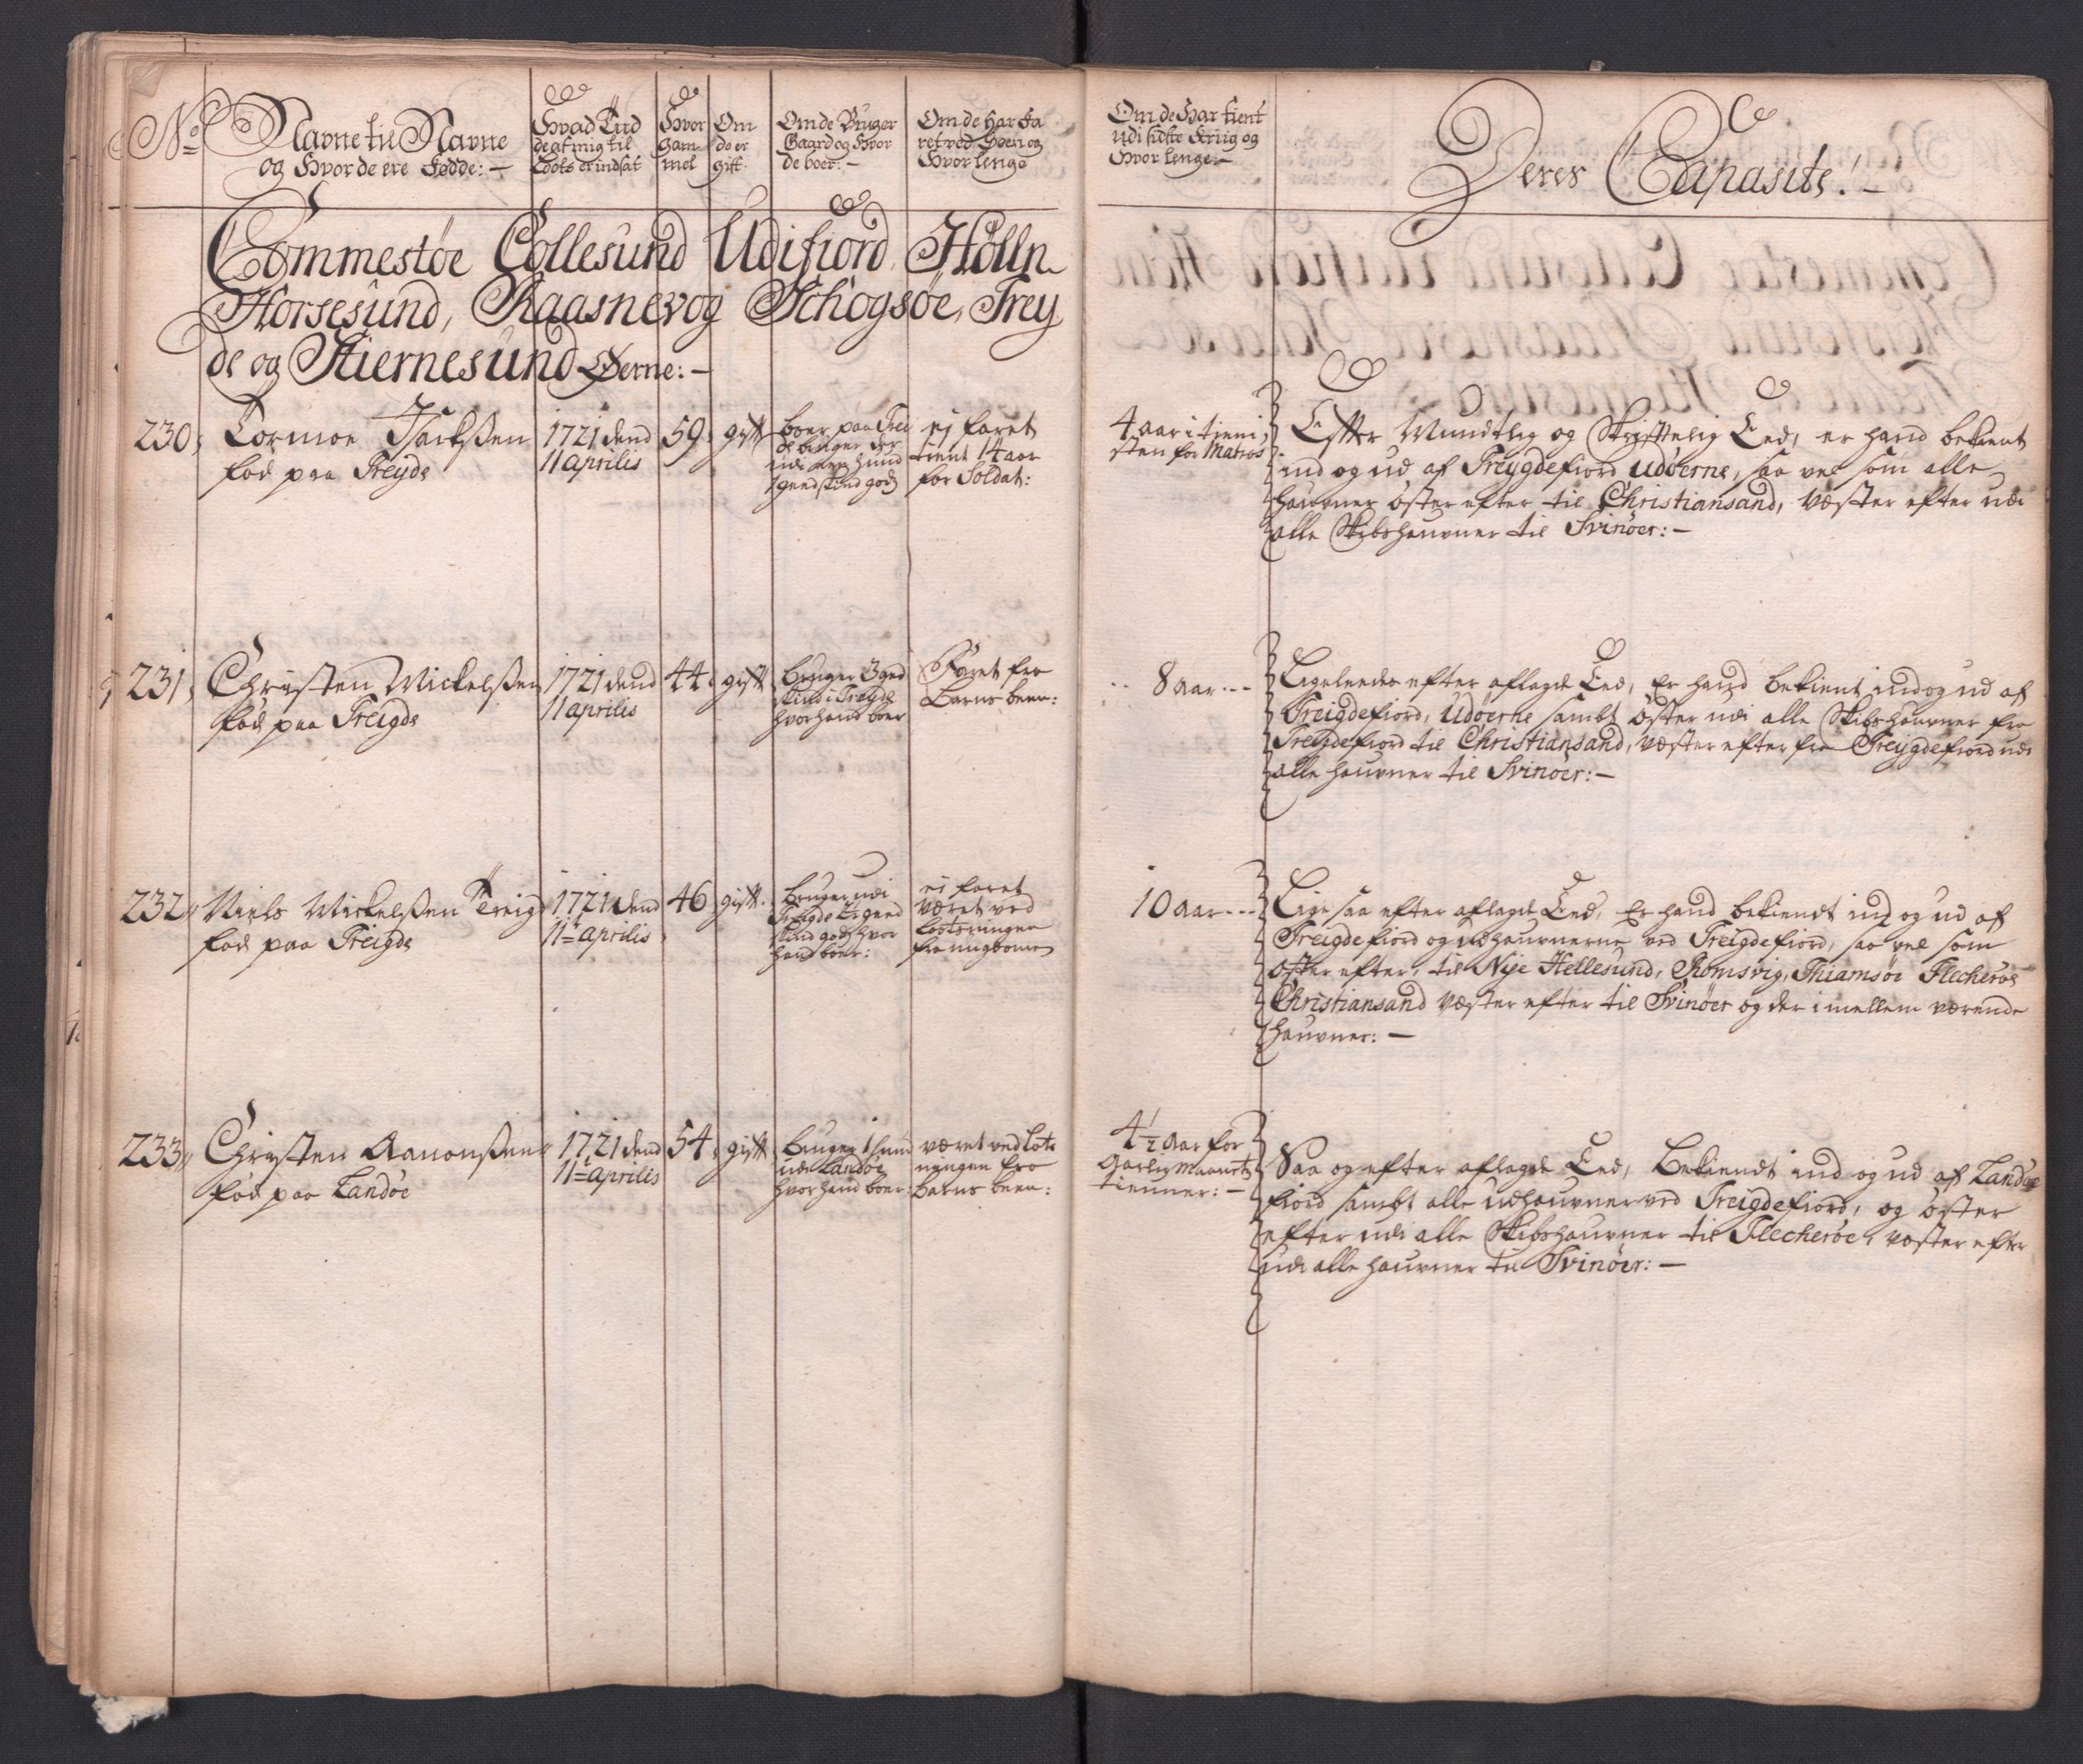 No
Navne til Navne
og Hvor de ere Fødde: —
Hvad Tiid
de af mig til
Loots er indsat
Hvor
gam
mel
Om
de er
gift.
Om de Bruger
Gaard og Hvor
de boer: —
Om de har fa
ret ved Søen og
Hvor lenge
Om de Har tient
udi sidste Kriig og
Hvor lenge: —
Deres Capasite: —
Commestøe Collesund Udifiord Hölln
Horsesund, Raasnevog Schogsøe, Trey
de og Stiernesund Øerne: —
230,
Tormoe Isachsßen
fød paa Treyde
1721 dend
11 aprilis
59,
gift
boer paa Trei
de bruger der
udi
ej faret
tient 14 aar
for Soldat:
4 aar i tieni,
sten for Matros
Efter Mundtlig og Skriftelig Eed, er hand bekient
ind og ud af Treygdefiord Udøerne, saa vel som alle
hauvner öster efter til Christiansand, væster efter udi
alle Skibshauvner til Svinöer: —
231,
Christen Mickelsßen
fød paa Treigde
1721 dend
11 aprilis
44,
gift
bruger 3 ged
skind i Treyde
hvor hand boer
Faret fra
Barns been:
8 aar ---
Ligeleedes efter aflagde Eed, Er hand bekient ind og ud af
Treigdefiord, Udøerne sambt öster udi alle Skibshauvner fra
Treigdefiord til Christiansand, væster efter fra Treijgdefiord udi
alle hauvner til Svinöer: —
232,,
Niels Mickelsßen Treigd
fød paa Treigde
1721 dend
11te aprilis
46,
gift.
bruger udi
Treigde 2 gied
skind gods hvor
hand boer:
ei faret
været ved
Lootsringen
fra ungdomen
10 aar ---
Lige saa efter aflagde Eed, Er hand bekiendt ind og ud af
Treigdefiord og udhauvnerne ved Treigdefiord, saa vel som
öster efter, til Nije Hellesund, Romsvig, Thiamsøe Flecheröe
Christiansand væster efter til Svinöer og der imellem værende
hauvner: —
233,,
Christen Aanonsßen,,
fød paa Landöe
1721 dend
11te aprilis
54,
gift
bruger 1 hud
udi Landöe
hvor hand boer:
været ved Lots
ningen fra
barns been:
4 1/2 aar for
tienner: —
Saa og efter aflagde Eed, Bekiendt ind og ud af Landöe
fiord sambt alle udhauvner ved Treigdefiord, og öster
efter udi alle Skibshauvner til Flecheröe, væster efter
udi alle hauvner til Svinöer: —